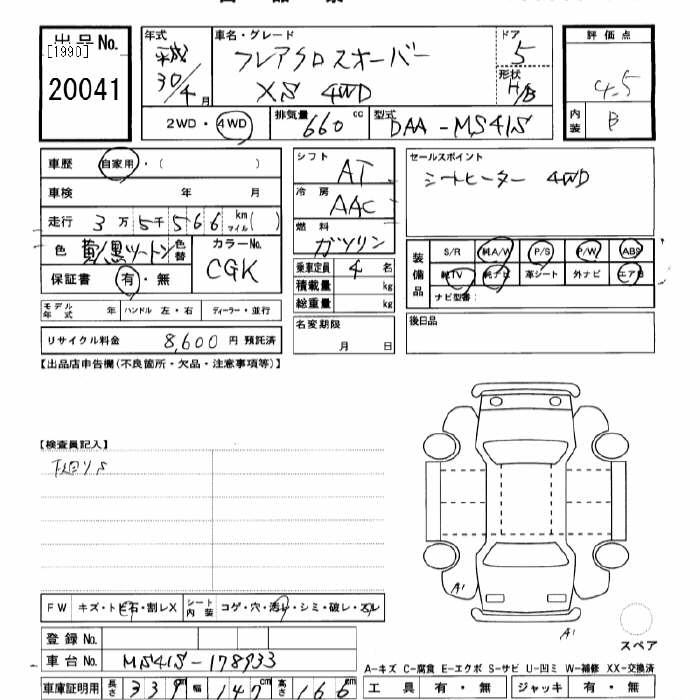 出品No. 年式 車名・グレード ドア 評価点
[1990] 平成 フレアクロスオーバー 5
20041 30/4月 XS 4WD 形状 H/B 4.5
2WD・4WD 排気量 660 cc 型式 DAA-MS41S 内装 B
車歴 自家用・( ) シフト AT セールスポイント
車検 年 月 冷房 AAC シートヒーター 4WD
走行 3万5千566 km マイル( ) 燃料 ガソリン
色 黄/黒ツートン 色替 カラーNo. CGK 乗車定員 4名 装備品 S/R 純A/W P/S P/W ABS
保証書 有・無 積載量 kg 純TV 純ナビ 革シート 外ナビ エアB
モデル年式 年 ハンドル 左・右 ディーラー・並行 総重量 kg ナビ型番:
リサイクル料金 8,600円 預託済 名変期限 月 日 後日品
【出品店申告欄(不良箇所・欠品・注意事項等)】
【検査員記入】
A1
FW キズ・トビ石・割レX シート内装 コゲ・穴・汚レ・シミ・破レ・スレ
A1
登録No. スペア
車台No. MS41S-178933
A-キズ C-腐食 E-エクボ S-サビ U-凹ミ W-補修 XX-交換済
車庫証明用 長さ 339cm 幅 147cm 高さ 166 工具 有・無 ジャッキ 有・無